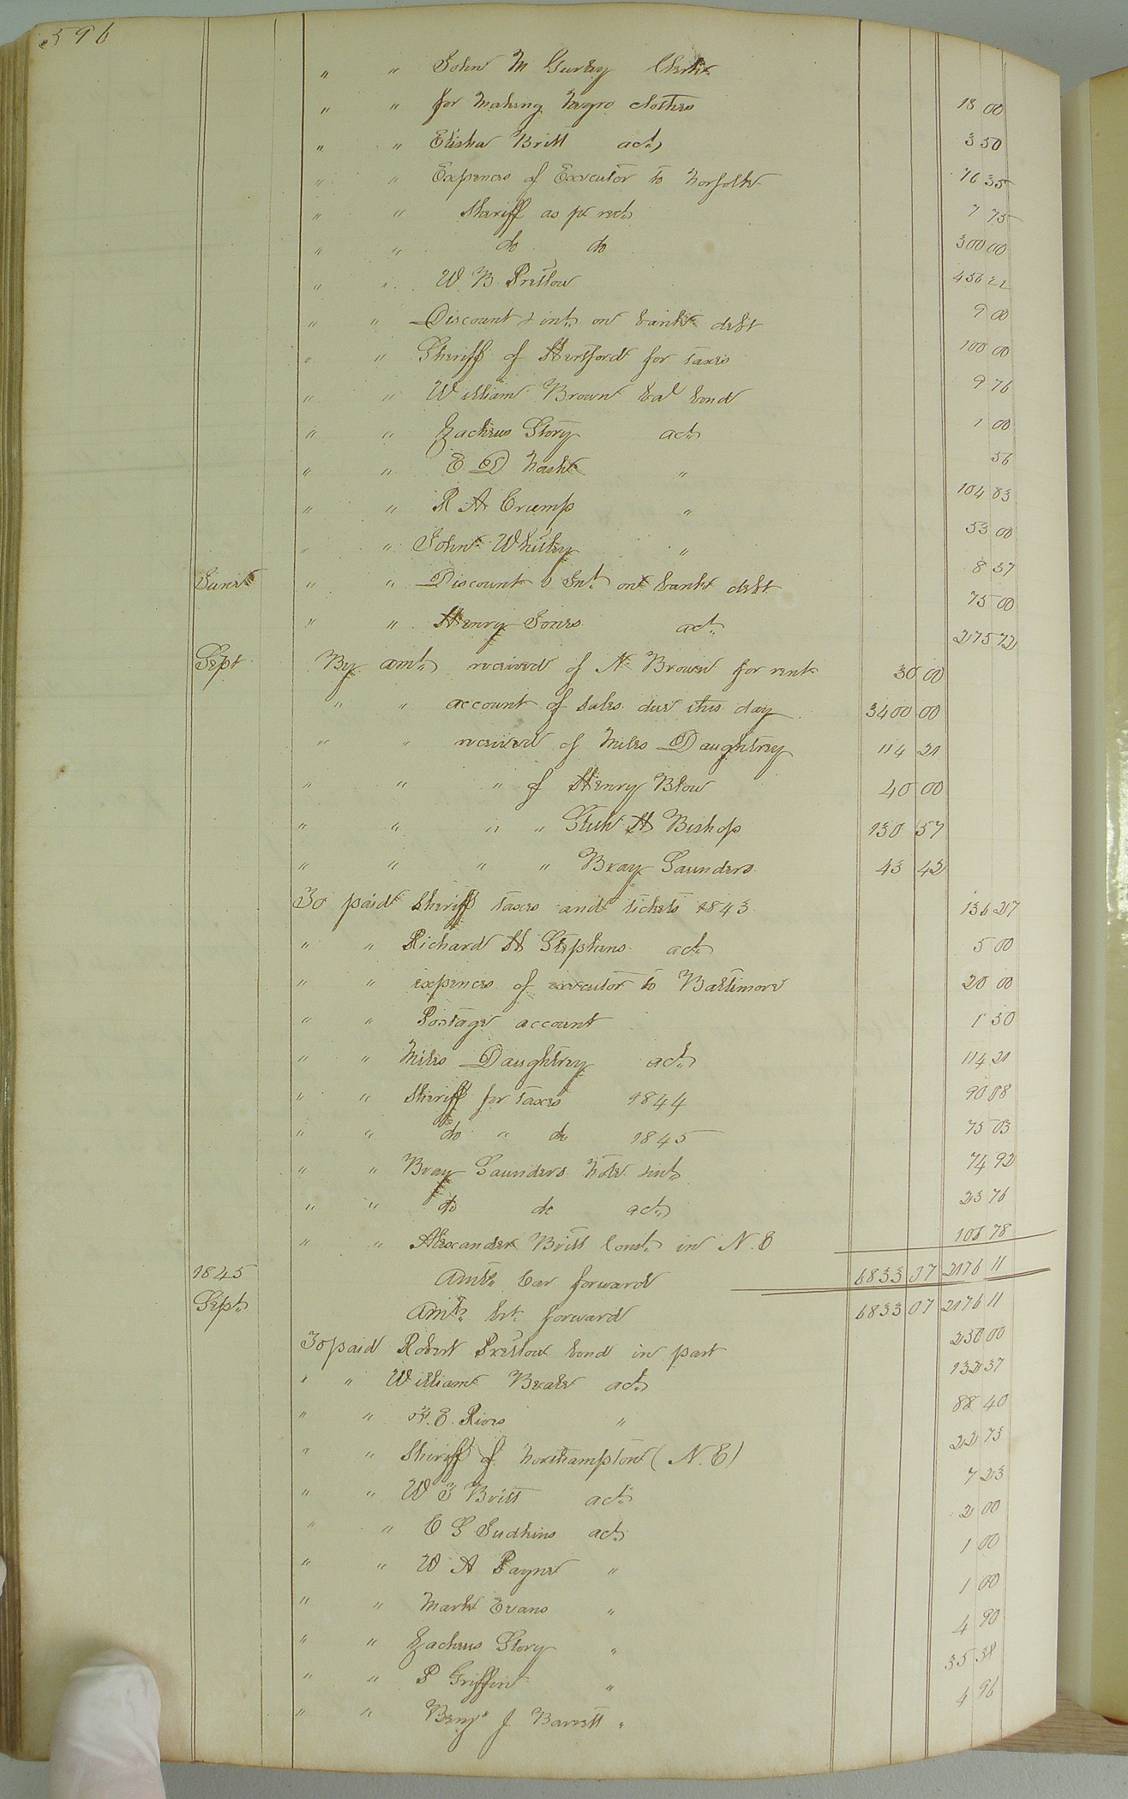 596
" " John M Gurley Clerk
" " for making Negro clothes 18 00
" " Elisha Britt act 3 50
" " Expences of Executor to Norfolk 16 35
" " Shariff as pr rect 7 75
" " do do 300 00
" " W B Preslow 456 22
" " Discount & int on bank debt 9 00
" " Sheriff of Hertford for taxes 100 00
" " William Brown bal bond 9 76
" " Zacheus Story act 1 00
" " E D Nash " 56
" " R A Crump " 104 83
" " John Whitley " 53 00
June " " Discount & Int on bank debt 8 57
" " Henry Jones act 75 00
2175 72
Sept By amt received of N Brown for rent 30 00
" " account of sales due this day 3400 00
" " received of Miles Daughtrey 114 21
" " " of Henry Blow 40 00
" " " " H Bishop 130 57
" " " " Bray Saunders 43 43
To paid Sheriff taxes and tickets 1843 136 27
" " Richard H Stephens act 5 00
" " expences of executor to Baltimore 20 00
" " Postage account 1 50
" " Miles Daughtrey act 114 21
" " Sheriff for taxes 1844 90 88
" " do " do 1845 75 03
" " Bray Saunders Note & int 74 92
" " do do act 23 76
" " Alexander Britt Const in N. C 106 78
1845 Amt Car forward 6833 07 2176 11
Sept Amt brt forward 6833 07 2176 11
To paid Robert Preslow bond in part 250 00
" " William Beale act 132 37
" " E. Rives " 88 40
" " Sheriff of Northampton (N. C) 22 75
" " W T Britt act 7 23
" " E S Judkins act 2 00
" " W A Payne " 1 00
" " Mark Evans " 1 00
" " Zacheus Story " 4 90
" " P Griffin " 35 38
" " Benja J Barrett " 4 96